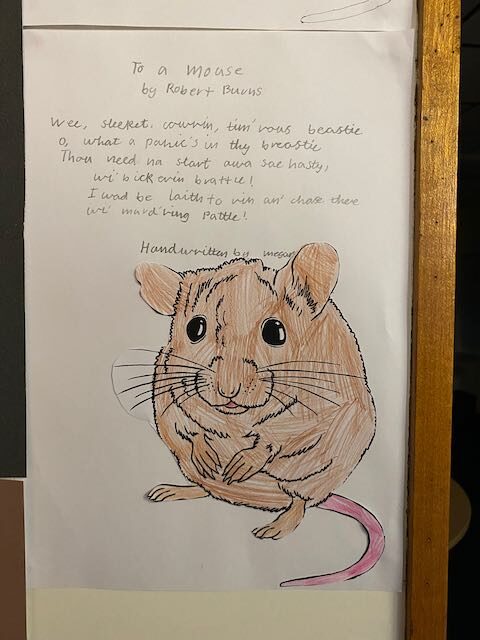 To a Mouse
by Robert Burns
Wee, sleeket, cowrin, tim'rous beastie
O, what a panic's in thy breastie
Thou need na start awa sae hasty,
wi' bickerin brattle!
I wad be laith to rin an' chase thee
wi' murd'ring Pattle!
Handwritten by megan